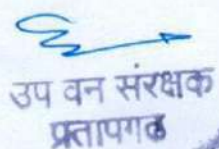 उप वन संरक्षक
प्रतापगढ